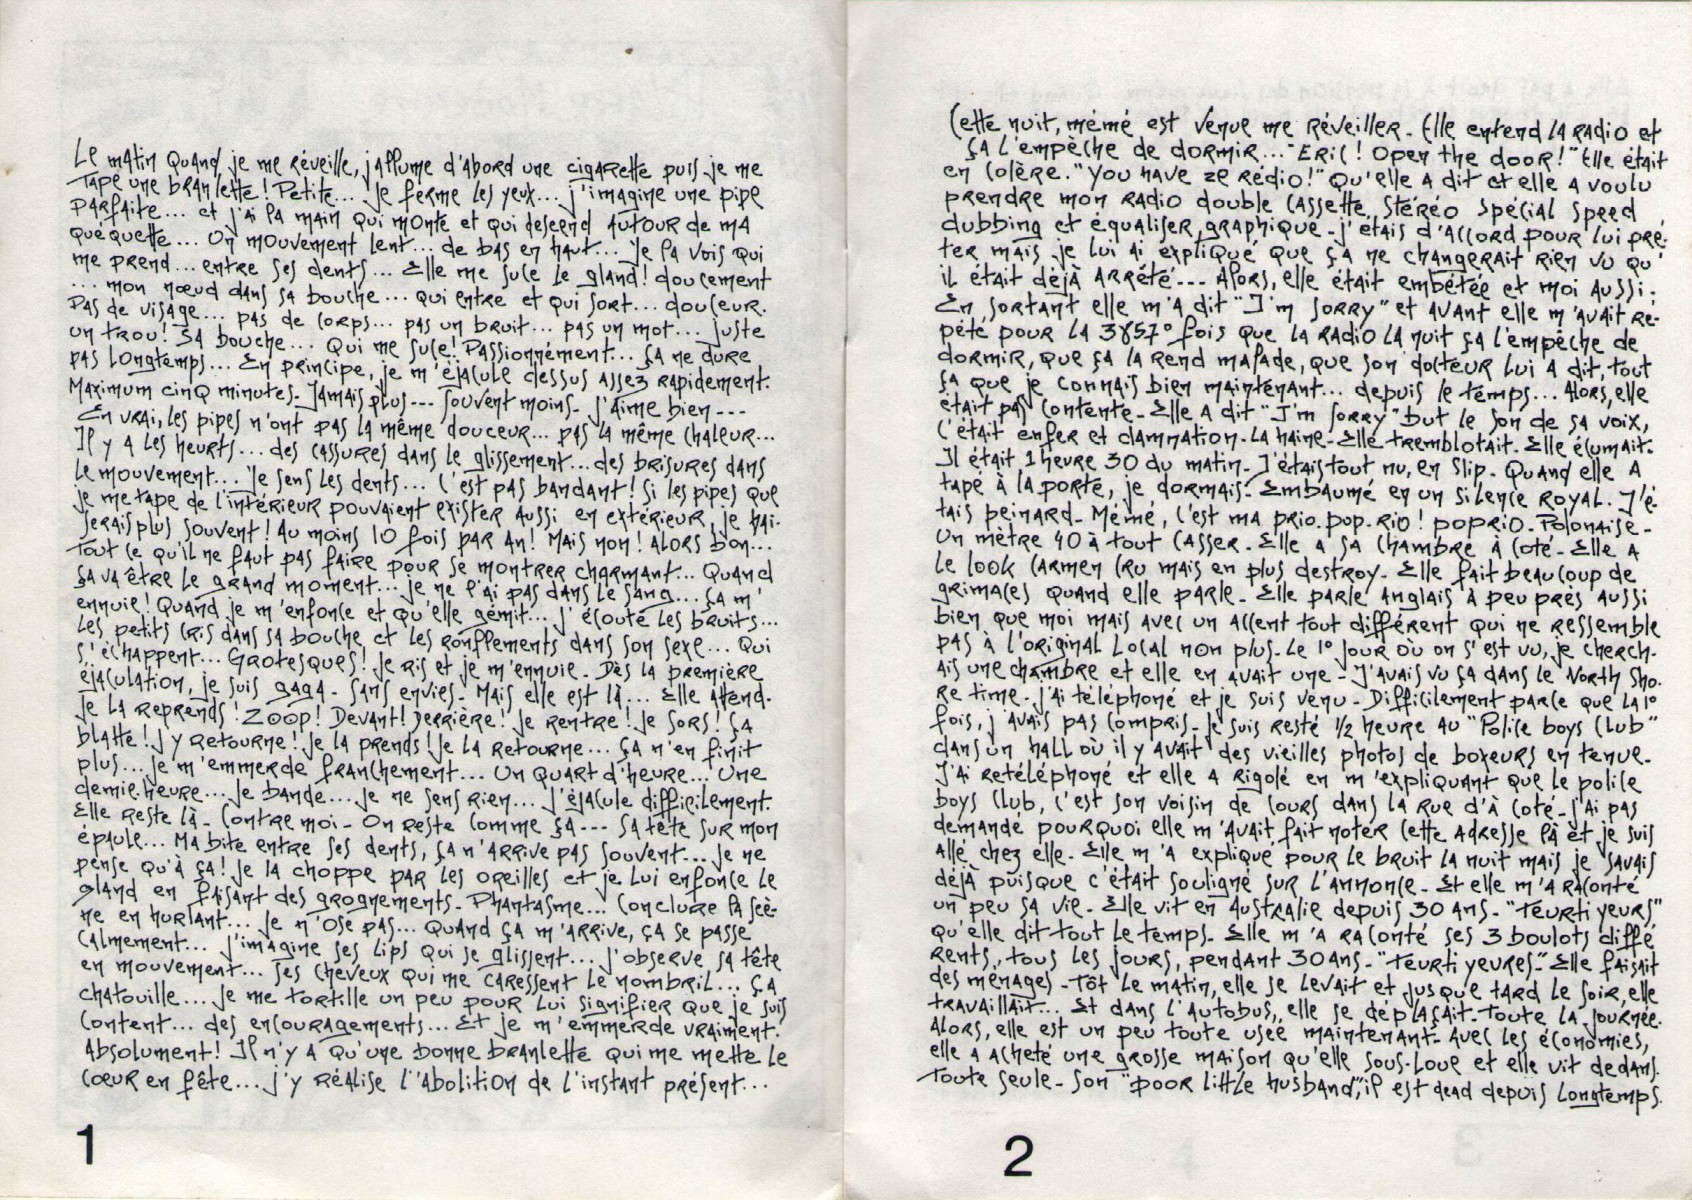 Le matin quand je me réveille, j'allume d'abord une cigarette puis je me
tape une branlette ! Petite... Je ferme les yeux... j'imagine une pipe
parfaite... et j'ai la main qui monte et qui descend autour de ma
quéquette... Un mouvement lent... de bas en haut... Je la vois qui
me prend... entre ses dents... Elle me suce le gland ! doucement
... mon nœud dans sa bouche... qui entre et qui sort... douceur.
Pas de visage... pas de corps... pas un bruit... pas un mot... juste
un trou ! Sa bouche... Qui me suce ! Passionnément... ça ne dure
pas longtemps... En principe, je m'éjacule dessus assez rapidement.
Maximum cinq minutes. Jamais plus --- Souvent moins. J'aime bien ---
En vrai, les pipes n'ont pas la même douceur... pas la même chaleur...
Il y a les heurts... des cassures dans le glissement... des brisures dans
le mouvement... Je sens les dents... C'est pas bandant ! Si les pipes que
je me tape de l'intérieur pouvaient exister aussi en extérieur, je bai-
serais plus souvent ! Au moins 10 fois par an ! Mais non ! Alors bon...
Tout ce qu'il ne faut pas faire pour se montrer charmant... Quand
ça va être le grand moment... je ne l'ai pas dans le sang... ça m'
ennuie ! Quand je m'enfonce et qu'elle gémit... j'écoute les bruits...
les petits cris dans sa bouche et les ronflements dans son sexe... Qui
s'échappent... Grotesques ! Je ris et je m'ennuie. Dès la première
éjaculation, je suis gaga. Sans envies. Mais elle est là... Elle attend.
Je la reprends ! ZOOP ! Devant ! Derrière ! Je rentre ! Je sors ! ça
blatte ! J'y retourne ! Je la prends ! Je la retourne... ça n'en finit
plus... Je m'emmerde franchement... Un quart d'heure... Une
demie.heure... Je bande... Je ne sens rien... J'éjacule difficilement.
Elle reste là. Contre moi. On reste comme ça --- Sa tête sur mon
épaule... Ma bite entre ses dents, ça n'arrive pas souvent... Je ne
pense qu'à ça ! Je la choppe par les oreilles et je lui enfonce le
gland en faisant des grognements. Phantasme... Conclure la scè-
ne en hurlant... Je n'ose pas... Quand ça m'arrive, ça se passe
calmement... J'imagine ses lips qui se glissent... J'observe sa tête
en mouvement... ses cheveux qui me caressent le nombril... ça
chatouille... Je me tortille un peu pour lui signifier que je suis
content... des encouragements... Et je m'emmerde vraiment.
Absolument ! Il n'y a qu'une bonne branlette qui me mette le
cœur en fête... j'y réalise l'abolition de l'instant présent...
1
Cette nuit, mémé est venue me réveiller. Elle entend la radio et
ça l'empêche de dormir... "Eric ! Open the door !" Elle était
en colère. "You have ze rédio !" Qu'elle a dit et elle a voulu
prendre mon radio double cassette, stéréo spécial speed
dubbing et équaliser, graphique. J'étais d'accord pour lui prê-
ter mais je lui ai expliqué que ça ne changerait rien vu qu'
il était déjà arrêté --- Alors, elle était embêtée et moi aussi.
En sortant elle m'a dit "I'm sorry" et avant elle m'avait ré-
pété pour la 3857° fois que la radio la nuit ça l'empêche de
dormir, que ça la rend malade, que son docteur lui a dit, tout
ça que je connais bien maintenant... depuis le temps... Alors, elle
était pas contente. Elle a dit "I'm sorry" but le son de sa voix,
c'était enfer et damnation. La haine. Elle tremblotait. Elle écumait.
Il était 1 heure 30 du matin. J'étais tout nu, en slip. Quand elle a
tapé à la porte, je dormais. Embaumé en un silence royal. J'é-
tais peinard. Mémé, c'est ma prio.pop.rio ! poprio. Polonaise.
Un mètre 40 à tout casser. Elle a sa chambre à côté. Elle a
le look Carmen Cru mais en plus destroy. Elle fait beaucoup de
grimaces quand elle parle. Elle parle anglais à peu près aussi
bien que moi mais avec un accent tout différent qui ne ressemble
pas à l'original local non plus. Le 1° jour où on s'est vu, je cherch-
ais une chambre et elle en avait une. J'avais vu ça dans le North Sho-
re time. J'ai téléphoné et je suis venu. Difficilement parce que la 1°
fois, j'avais pas compris. Je suis resté 1/2 heure au "Police boys club"
dans un hall où il y avait des vieilles photos de boxeurs en tenue.
J'ai retéléphoné et elle a rigolé en m'expliquant que le police
boys club, c'est son voisin de cours dans la rue d'à côté. J'ai pas
demandé pourquoi elle m'avait fait noter cette adresse là et je suis
allé chez elle. Elle m'a expliqué pour le bruit la nuit mais je savais
déjà puisque c'était souligné sur l'annonce. Et elle m'a raconté
un peu sa vie. Elle vit en Australie depuis 30 ans. "Teurti yeurs"
qu'elle dit tout le temps. Elle m'a raconté ses 3 boulots diffé
rents, tous les jours, pendant 30 ans. "Teurti yeures". Elle faisait
des ménages. Tôt le matin, elle se levait et jusque tard le soir, elle
travaillait... Et dans l'autobus, elle se déplaçait. Toute la journée.
Alors, elle est un peu toute usée maintenant. Avec les économies,
elle a acheté une grosse maison qu'elle sous-loue et elle vit dedans.
Toute seule. Son "poor little husband", il est dead depuis longtemps.
2